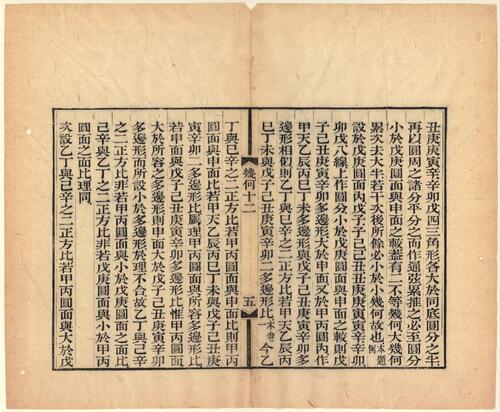 丑庚庚寅寅辛辛卯戊四三角形各大於同底圜分之半
再以圜周之諸分平分之而作通弦累推之必至圜分
小於戊庚圜面與申面之較蓋有二不等幾何大幾何
累次去大半若干次後所餘必小於小幾何故也本題例
設於戊庚圜面內戊子子己己丑丑庚庚寅寅辛辛卯
卯戊八線上作圜分小於戊庚圜面與申面之較則戊
子己丑庚寅辛卯多邊形大於申面又於甲丙圜內作
甲天乙辰丙巳丁未多邊形與戊子己丑庚寅辛卯多
邊形相似則乙丁與己辛之二正方比若甲天乙辰丙
巳丁未與戊子己丑庚寅辛卯二多邊形比本卷一今乙
幾何十二
五
丁與己辛之二正方比若甲丙圜面與申面比則甲丙
圜面與申面比若甲天乙辰丙巳丁未與戊子己丑庚
寅辛卯二多邊形比屬理甲丙圜面與所容多邊形比
若申面與戊子己丑庚寅辛卯多邊形比惟甲丙圜面
大於所容之多邊形則申面大於戊子己丑庚寅辛卯
多邊形而所設小於多邊形於理不合故乙丁與己辛
之二正方比非若甲丙圜面與小於戊庚圜面之面比
己辛與乙丁之二正方比非若戊庚圜面與小於甲丙
圜面之面比理同
次設乙丁與己辛之二正方比若甲丙圜面與大於戊